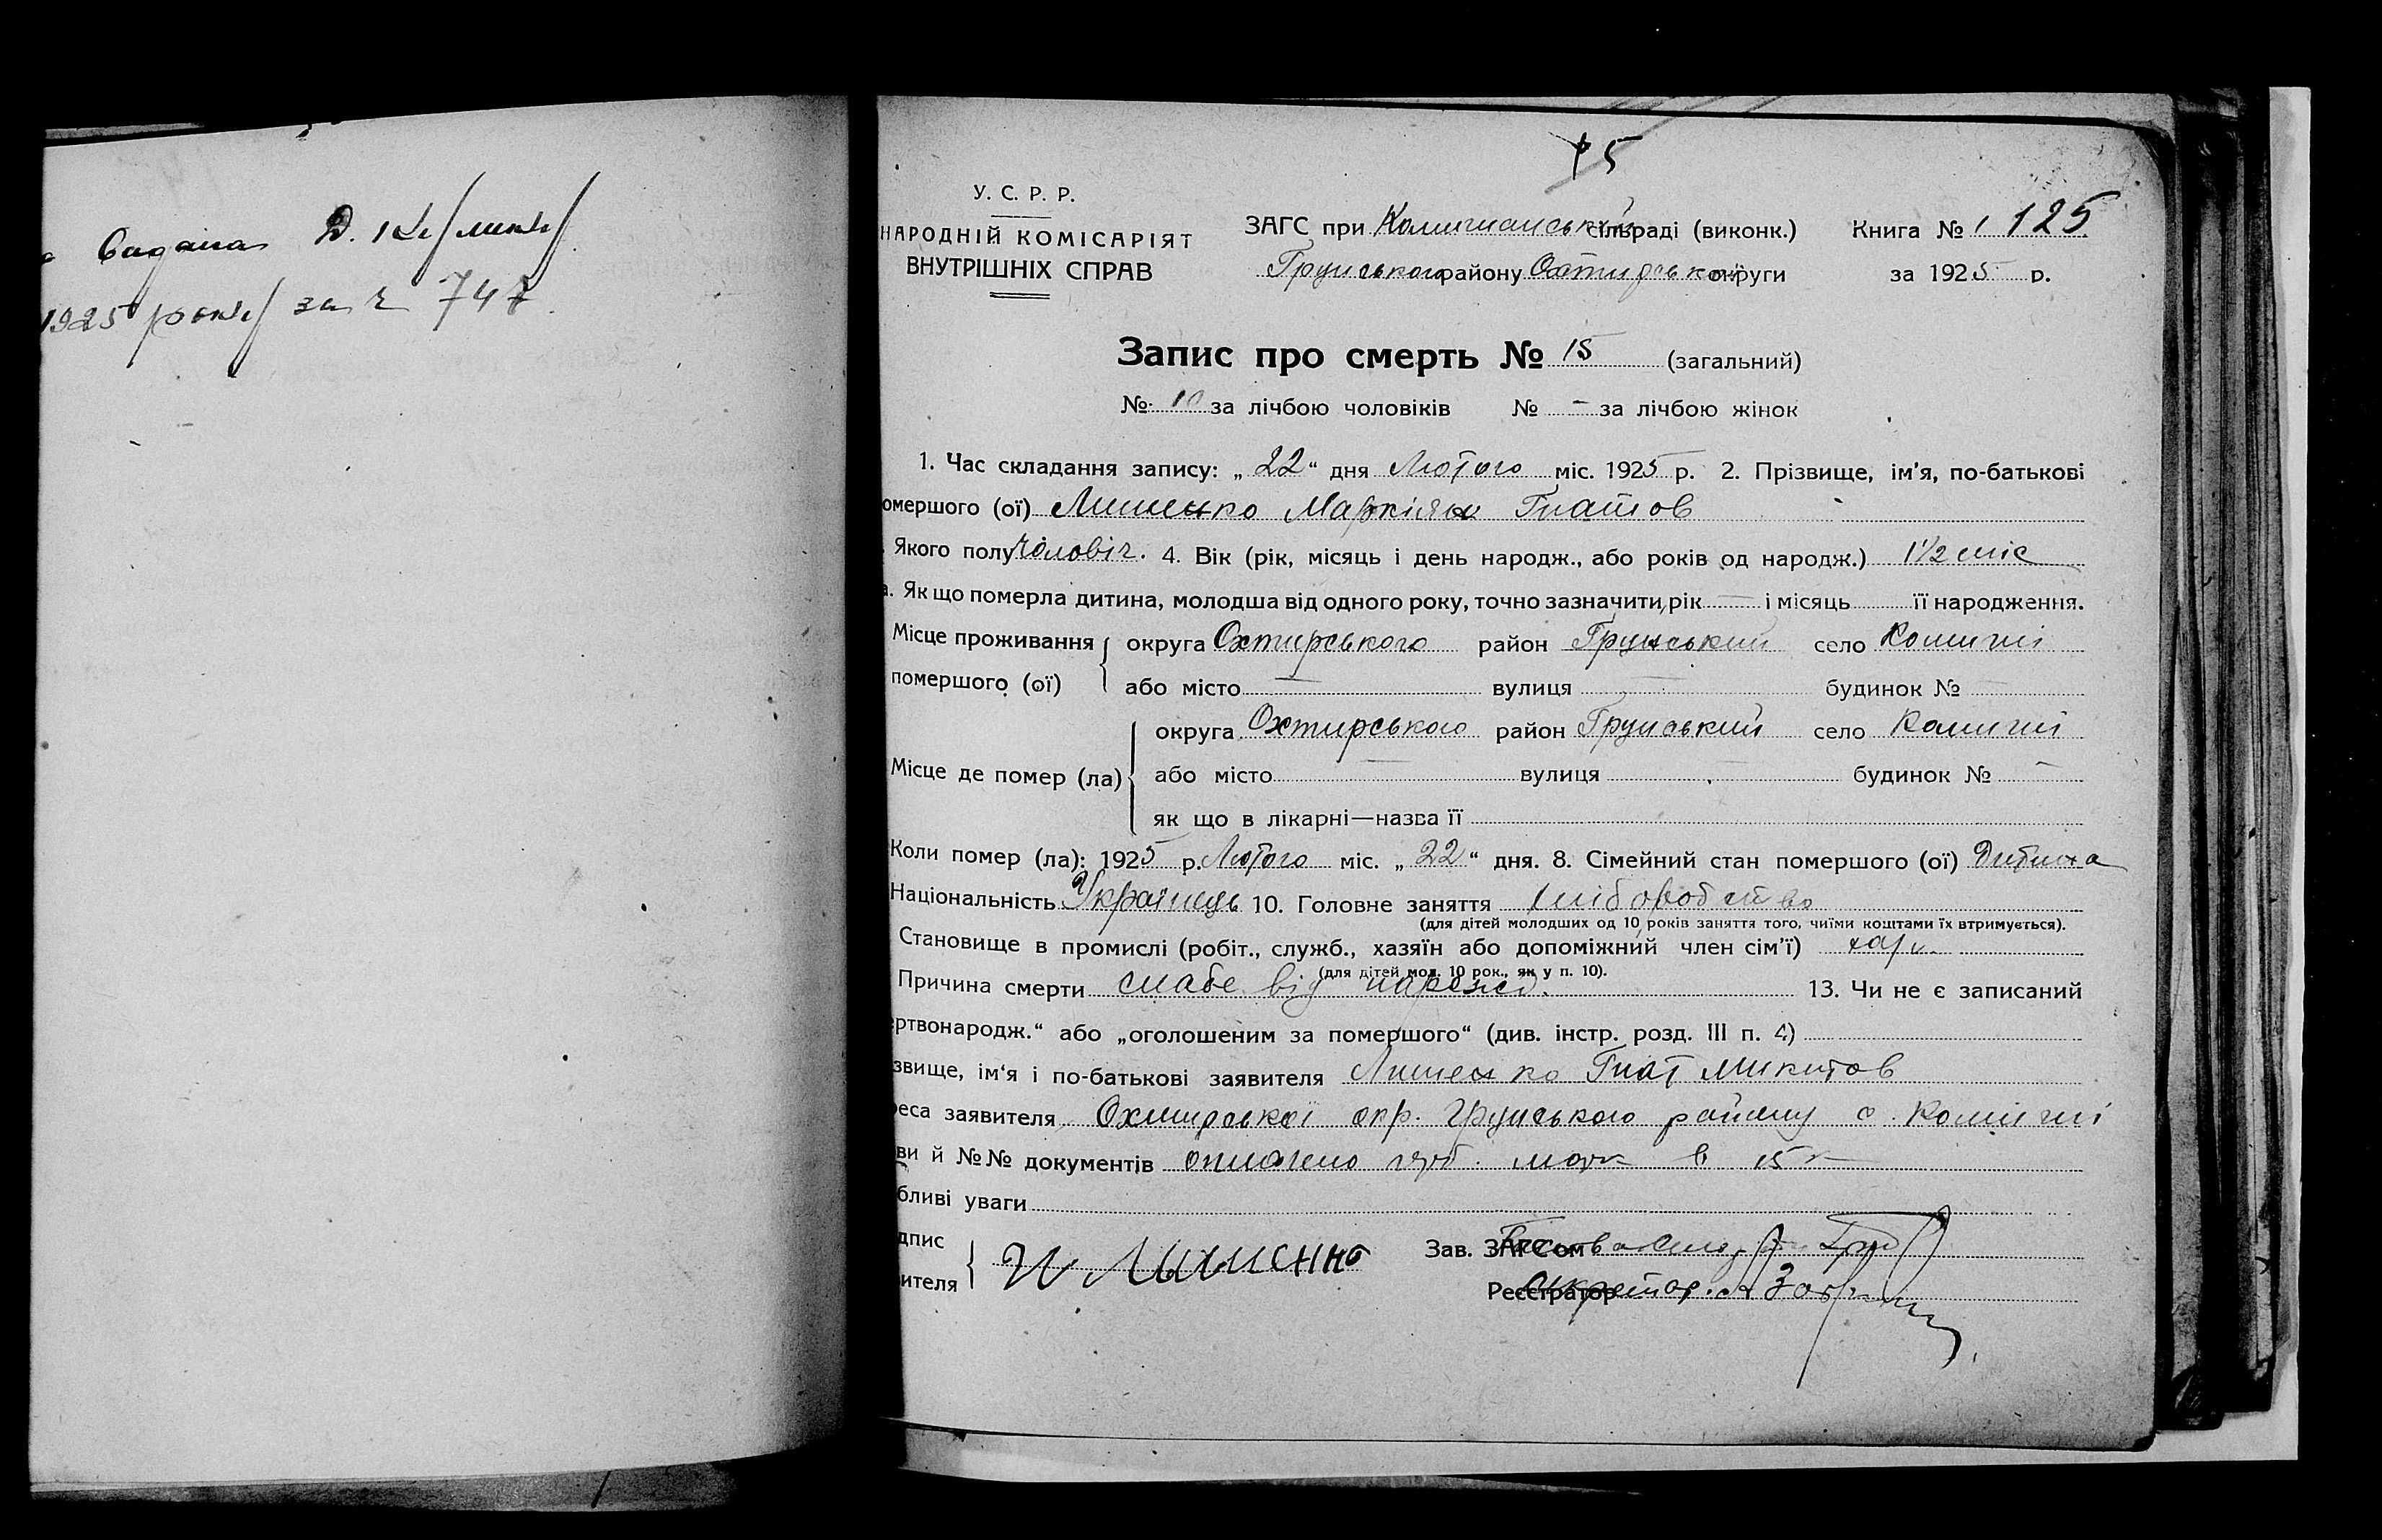 Видана
1925 року за ч 747
15
У. С. Р. Р.
НАРОДНІЙ КОМІСАРІЯТ
ВНУТРІШНІХ СПРАВ
ЗАГС при Комишанській сільраді (виконк.) Книга № 1 125
Грунського району Охтирськ округи за 1925 р.
Запис про смерть № 15 (загальний)
№ 10 за лічбою чоловіків № — за лічбою жінок
1. Час складання запису: „22“ дня Лютого міс. 1925 р. 2. Прізвище, ім’я, по-батькові
омершого (ої) Лишенко Маркіян Гнатов
Якого полу чоловіч. 4. Вік (рік, місяць і день народж., або років од народж.) 1½ міс
а. Як що померла дитина, молодша від одного року, точно зазначити, рік — і місяць її народження.
Місце проживання округа Охтирського район Грунський село Комиші
помершого (ої) або місто — вулиця — будинок № —
округа Охтирського район Грунський село Комиші
Місце де помер (ла) або місто — вулиця — будинок № —
як що в лікарні—назва її
Коли помер (ла): 1925 р. Лютого міс. „22“ дня. 8. Сімейний стан помершого (ої) Дитина
Національність Українець 10. Головне заняття хліборобство
(для дітей молодших од 10 років заняття того, чиїми коштами їх втримується).
Становище в промислі (робіт., служб., хазяїн або допоміжний член сім’ї)
(для дітей мол. 10 рок., як у п. 10).
Причина смерти слабе від нарожд. 13. Чи не є записаний
ертвонародж.“ або „оголошеним за помершого“ (див. інстр. розд. III п. 4)
звище, ім‘я і по-батькові заявителя Лишенко Гнат Микитов
реса заявителя Охтирської окр. Грунського району с. Комиші
ви й №№ документів оплачено герб. марк в 15 к
бливі уваги
дпис
ителя И Лышенко
Зав. ЗАГСом
Реєстратор Секретар